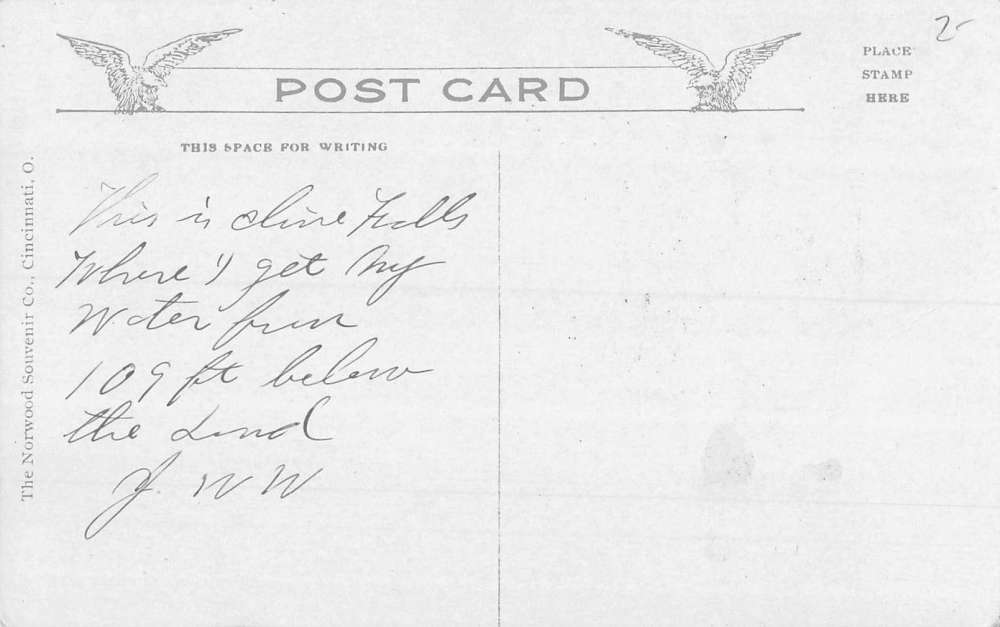 2-
PLACE
STAMP
HERE
POST CARD
THIS SPACE FOR WRITING
The Norwood Souvenir Co., Cincinnati, O.
This is Cline Falls
Where I get My
Water from
109 ft below
the Land
J. W W